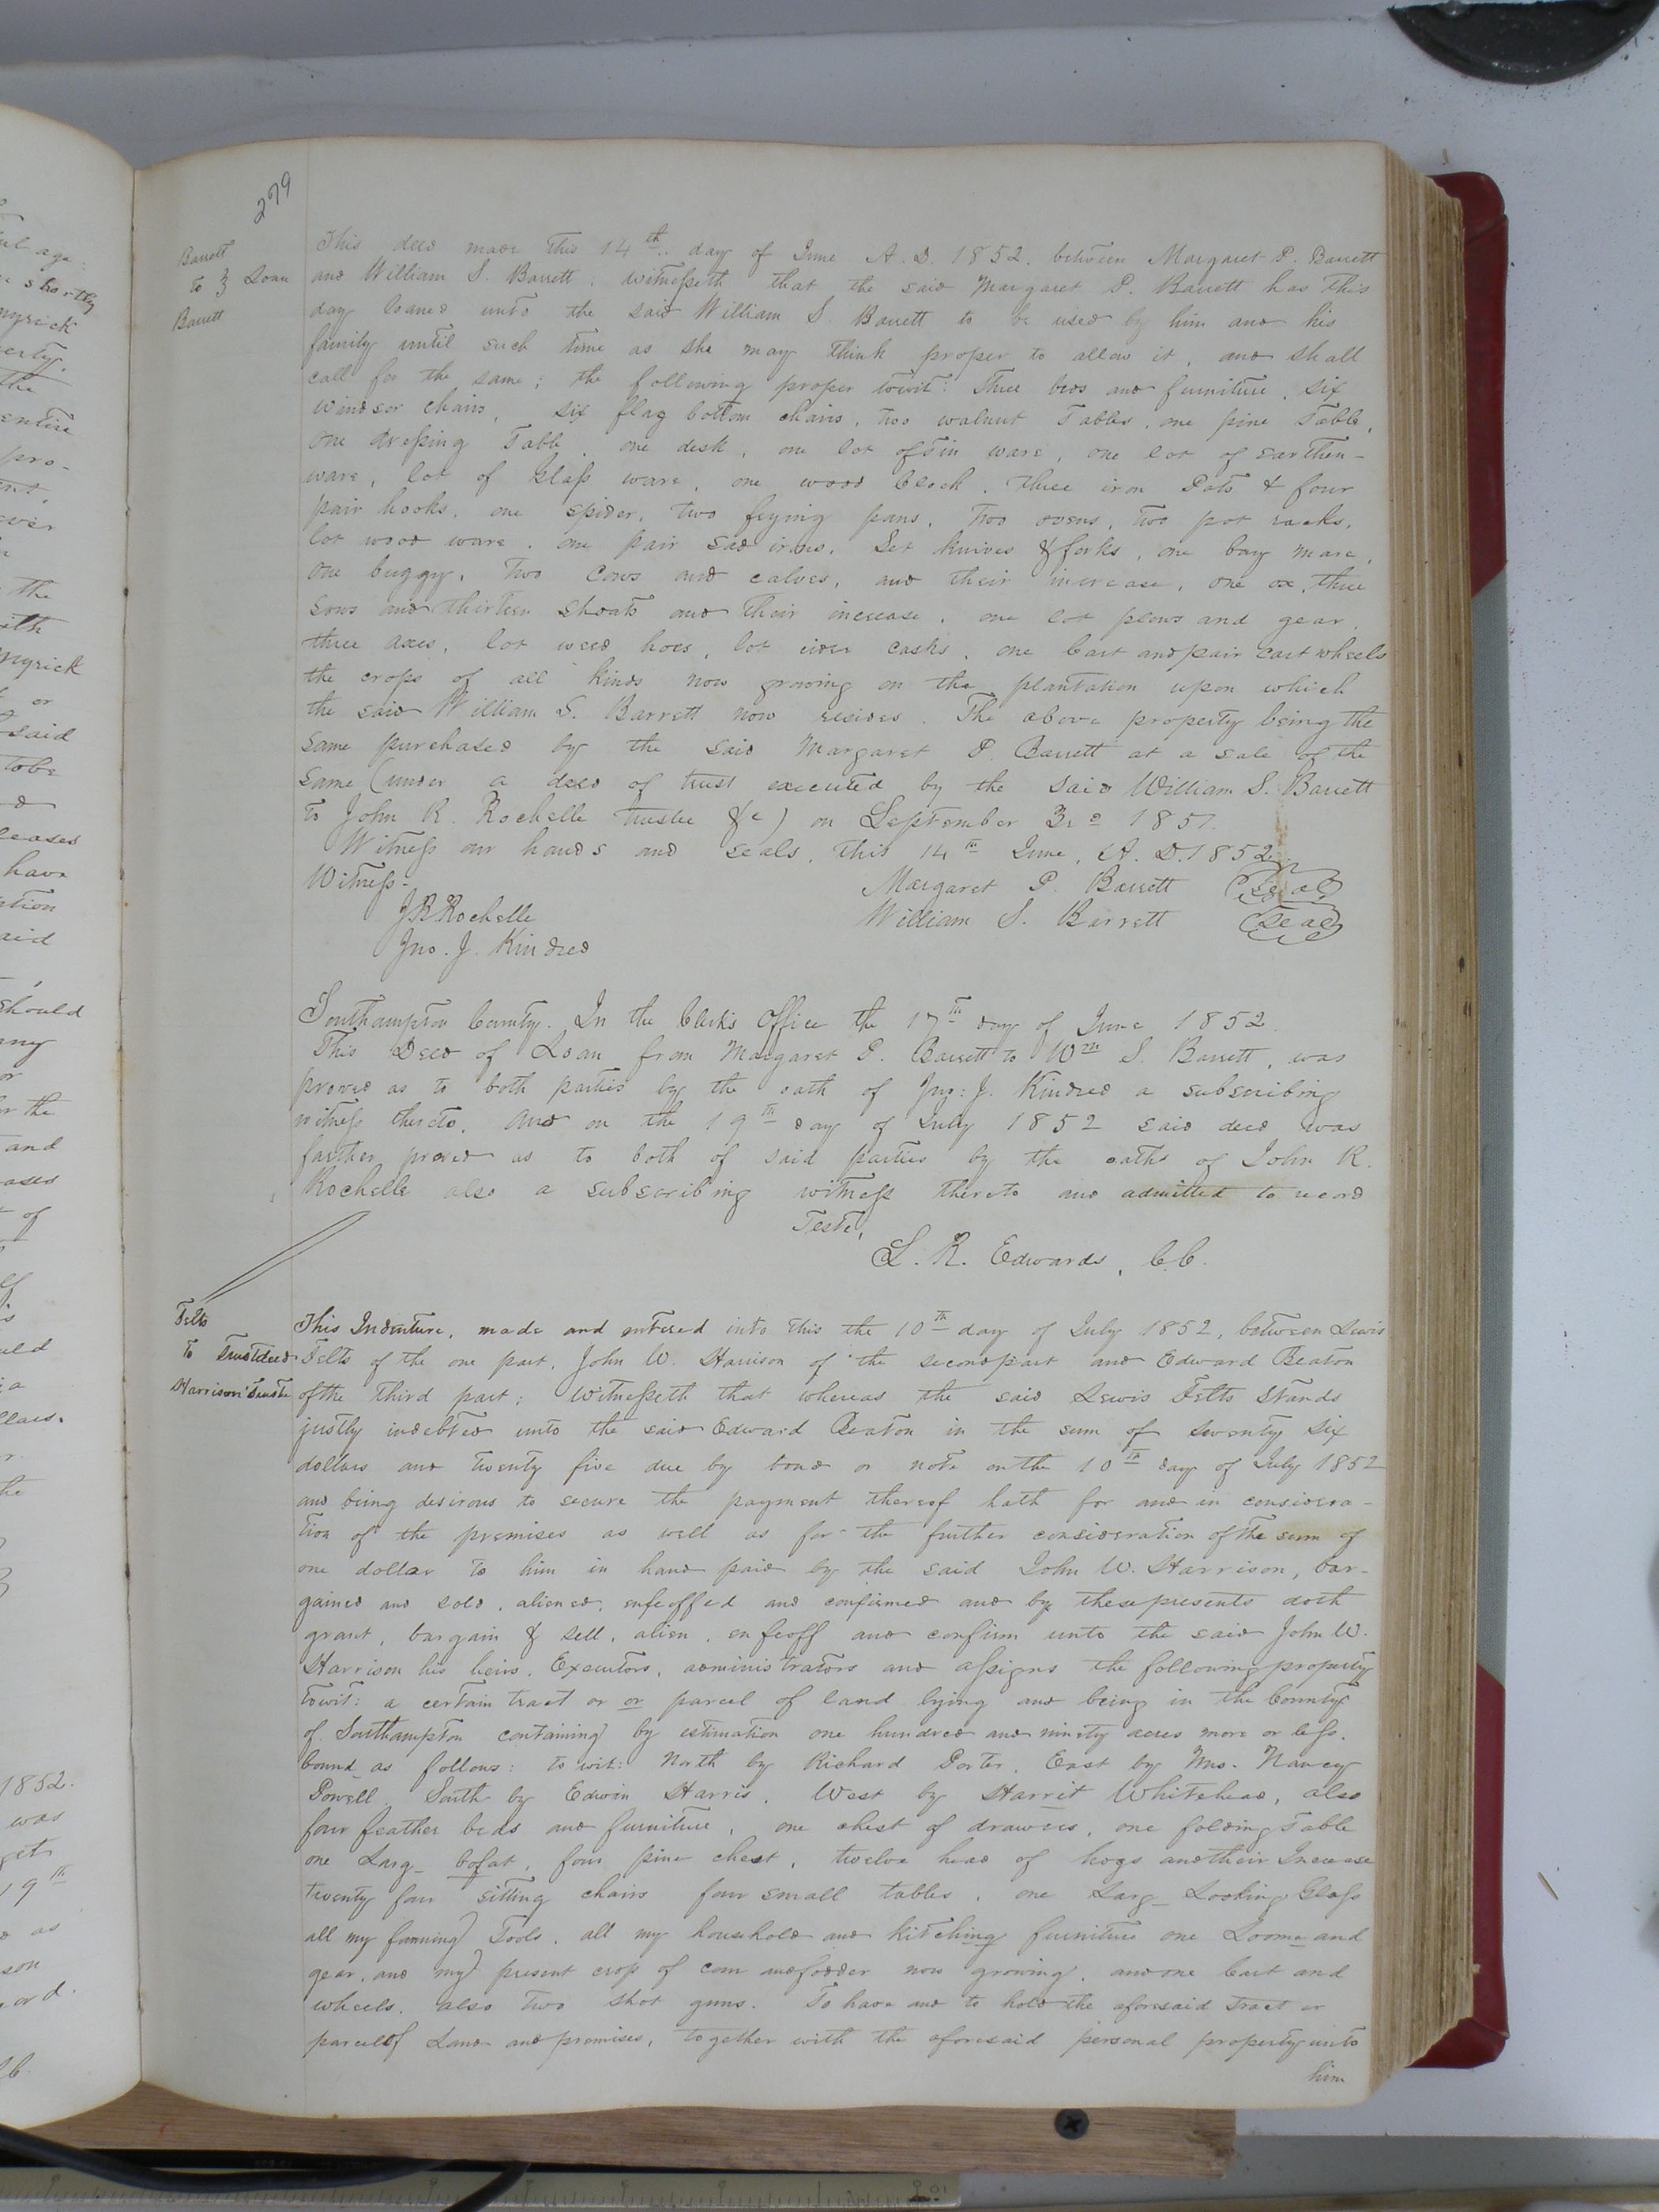 279
Barrett
to } Loan
Barrett
This deed made this 14th day of June A.D. 1852. between Margaret P. Barrett
and William S. Barrett; witnesseth that the said Margaret P. Barrett has this
day loaned unto the said William S. Barrett to be used by him and his
family until such time as she may think proper to allow it, and shall
call for the same; the following proper towit: Three beds and furniture, six
windsor chairs, six flag bottom chairs, two walnut Tables, one pine Table,
one dressing Table, one desk, one lot of tin ware, one lot of earthen-
ware, lot of glass ware, one wood Clock, three iron Pots & four
pair hooks, one spider, two frying pans, two ovens, two pot racks,
lot wood ware, one pair sad irons, Set knives & forks, one bay mare,
one buggy, two Cows and calves, and their increase, one ox, three
sows and thirteen shoats and their increase, one lot plows and gear,
three axes, lot weed hoes, lot cider casks, one Cart and pair Cart wheels
the crops of all kinds now growing on the plantation upon which
the said William S. Barrett now resides. The above property being the
same purchased by the said Margaret P. Barrett at a sale of the
same (under a deed of trust executed by the said William S. Barrett
to John R. Rochelle trustee &c) on September 3rd 1851.
Witness our hands and seals, this 14th June, A.D. 1852
Witness: Margaret P. Barrett (Seal)
J R Rochelle William S. Barrett (Seal)
Jno. J. Kindred
Southampton County. In the Clerk's Office the 17th day of June 1852.
This Deed of Loan from Margaret P. Barrett to Wm S. Barrett, was
proved as to both parties by the oath of Jno: J. Kindred a subscribing
witness thereto. And on the 19th day of July 1852 said deed was
farther proved as to both of said parties by the oath of John R.
Rochelle also a subscribing witness thereto and admitted to record
Teste,
L. R. Edwards, C.C.
Felts
To Trust deed
Harrison Truste
This Indenture, made and entered into this the 10th day of July 1852, between Lewis
Felts of the one part, John W. Harrison of the second part and Edward Beaton
of the third part; Witnesseth that whereas the said Lewis Felts Stands
justly indebted unto the said Edward Beaton in the sum of seventy six
dollars and twenty five due by bond or note on the 10th day of July 1852
and being desirous to secure the payment thereof hath for and in considera-
tion of the premises as well as for the further consideration of the sum of
one dollar to him in hand paid by the said John W. Harrison, bar-
gained and sold, aliened, enfeoffed and confirmed and by these presents doth
grant, bargain & sell, alien, enfeoff and confirm unto the said John W.
Harrison his heirs, Executors, administrators and assigns the following property
towit: a certain tract or or parcel of land lying and being in the County
of Southampton containing by estimation one hundred and ninety acres more or less.
bound as follows: to wit: North by Richard Porter, East by Mrs. Nancy
Powell, South by Edwin Harris, West by Harrit Whitehead, also
four feather beds and furniture, one chest of drawers, one folding Table
one Larg bofat, four pine chest, twelve head of hogs and their Increase
twenty four sitting chairs four small tables, one Larg Looking Glass
all my farming Tools, all my household and kitching furniture one Loome and
gear, and my present crop of corn and fodder now growing, and one Cart and
wheels, also two shot guns. To have and to hold the aforesaid tract or
parcel of Land and premises, together with the aforesaid personal property unto
him